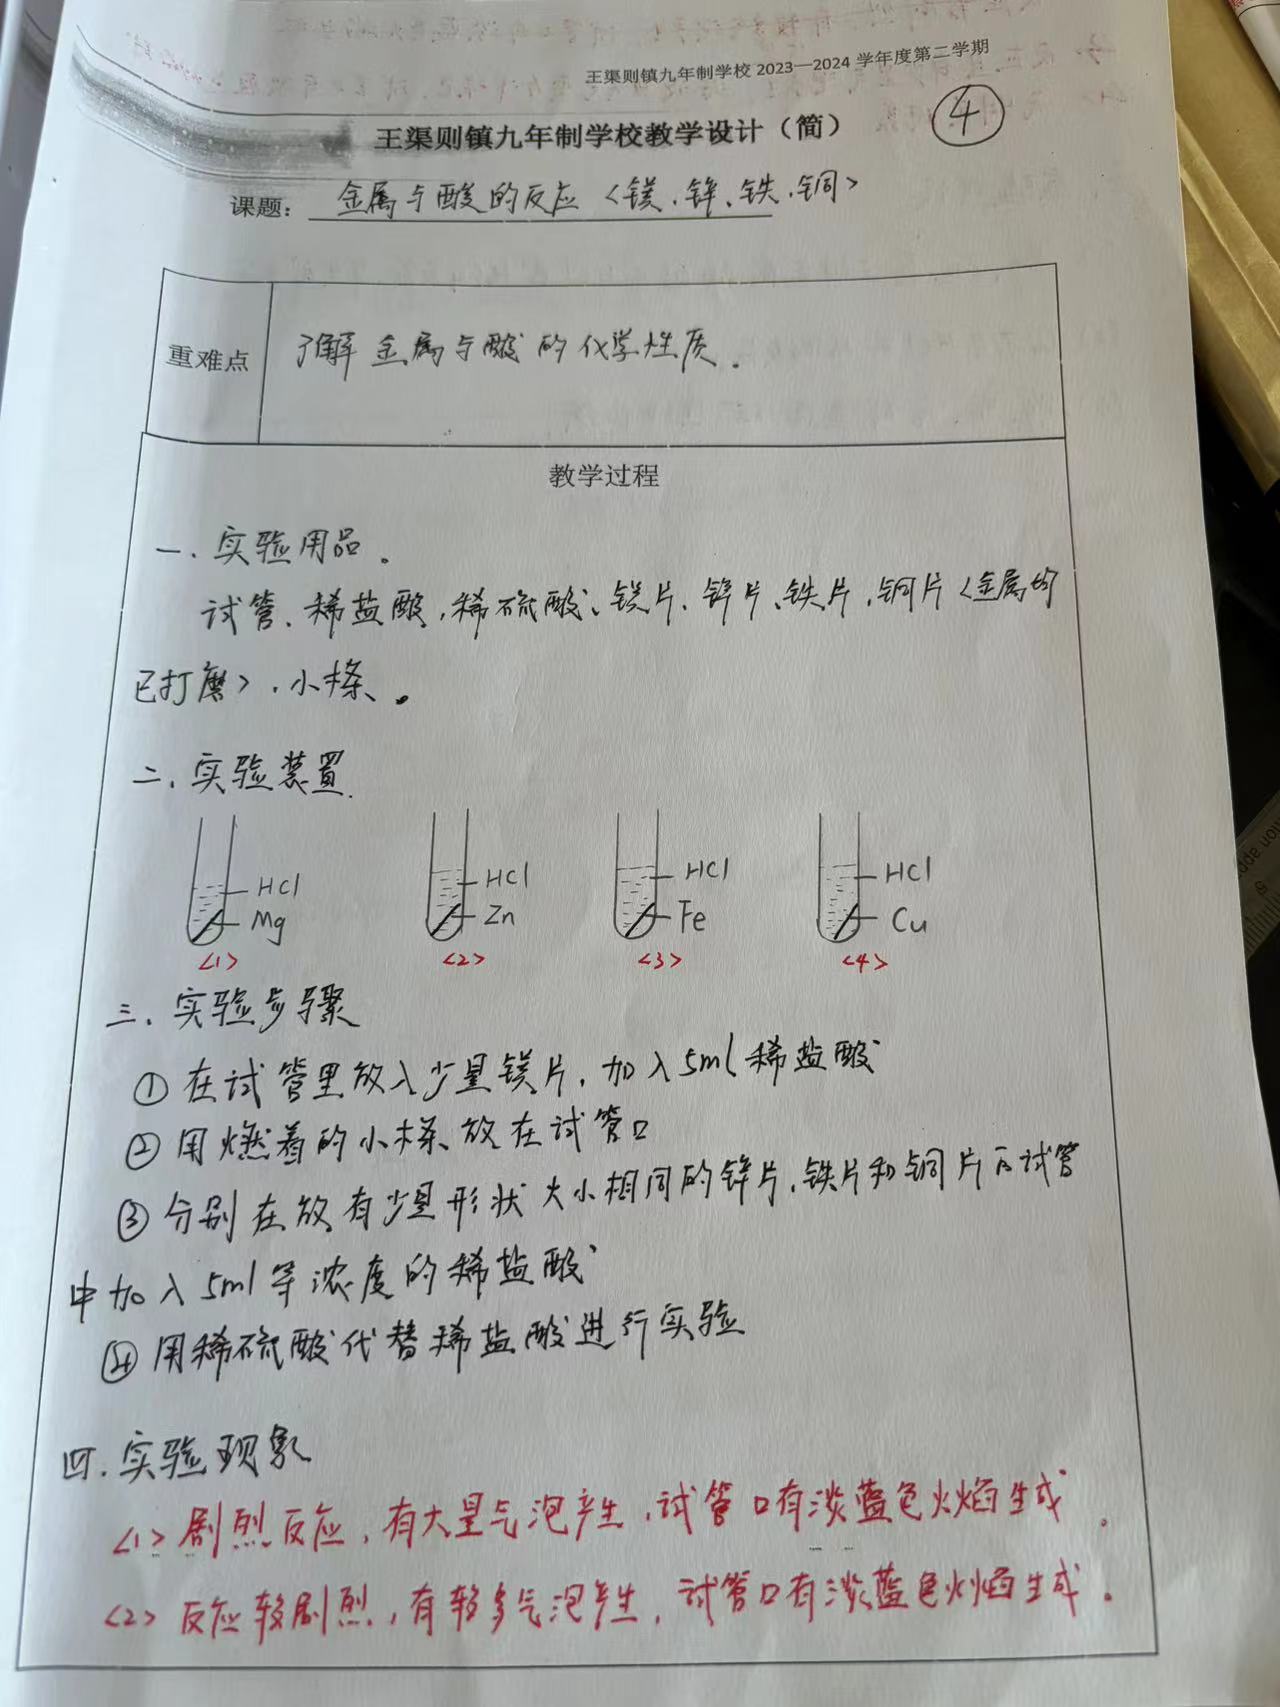 王渠则镇九年制学校 2023—2024 学年度第二学期
④
王渠则镇九年制学校教学设计（简）
课题： 金属与酸的反应<镁、锌、铁、铜>
重难点
了解金属与酸的化学性质.
教学过程
一. 实验用品.
试管、稀盐酸,稀硫酸、镁片、锌片、铁片,铜片<金属均
已打磨>,小木条。
二. 实验装置.
HCl HCl HCl HCl
Mg Zn Fe Cu
<1> <2> <3> <4>
三. 实验步骤
① 在试管里放入少量镁片, 加入5ml稀盐酸
② 用燃着的小木条放在试管口
③ 分别在放有少量形状大小相同的锌片,铁片和铜片的试管
中加入5ml等浓度的稀盐酸
④ 用稀硫酸代替稀盐酸进行实验
四. 实验现象
<1> 剧烈反应, 有大量气泡产生,试管口有淡蓝色火焰生成.
<2> 反应较剧烈,有较多气泡产生, 试管口有淡蓝色火焰生成.